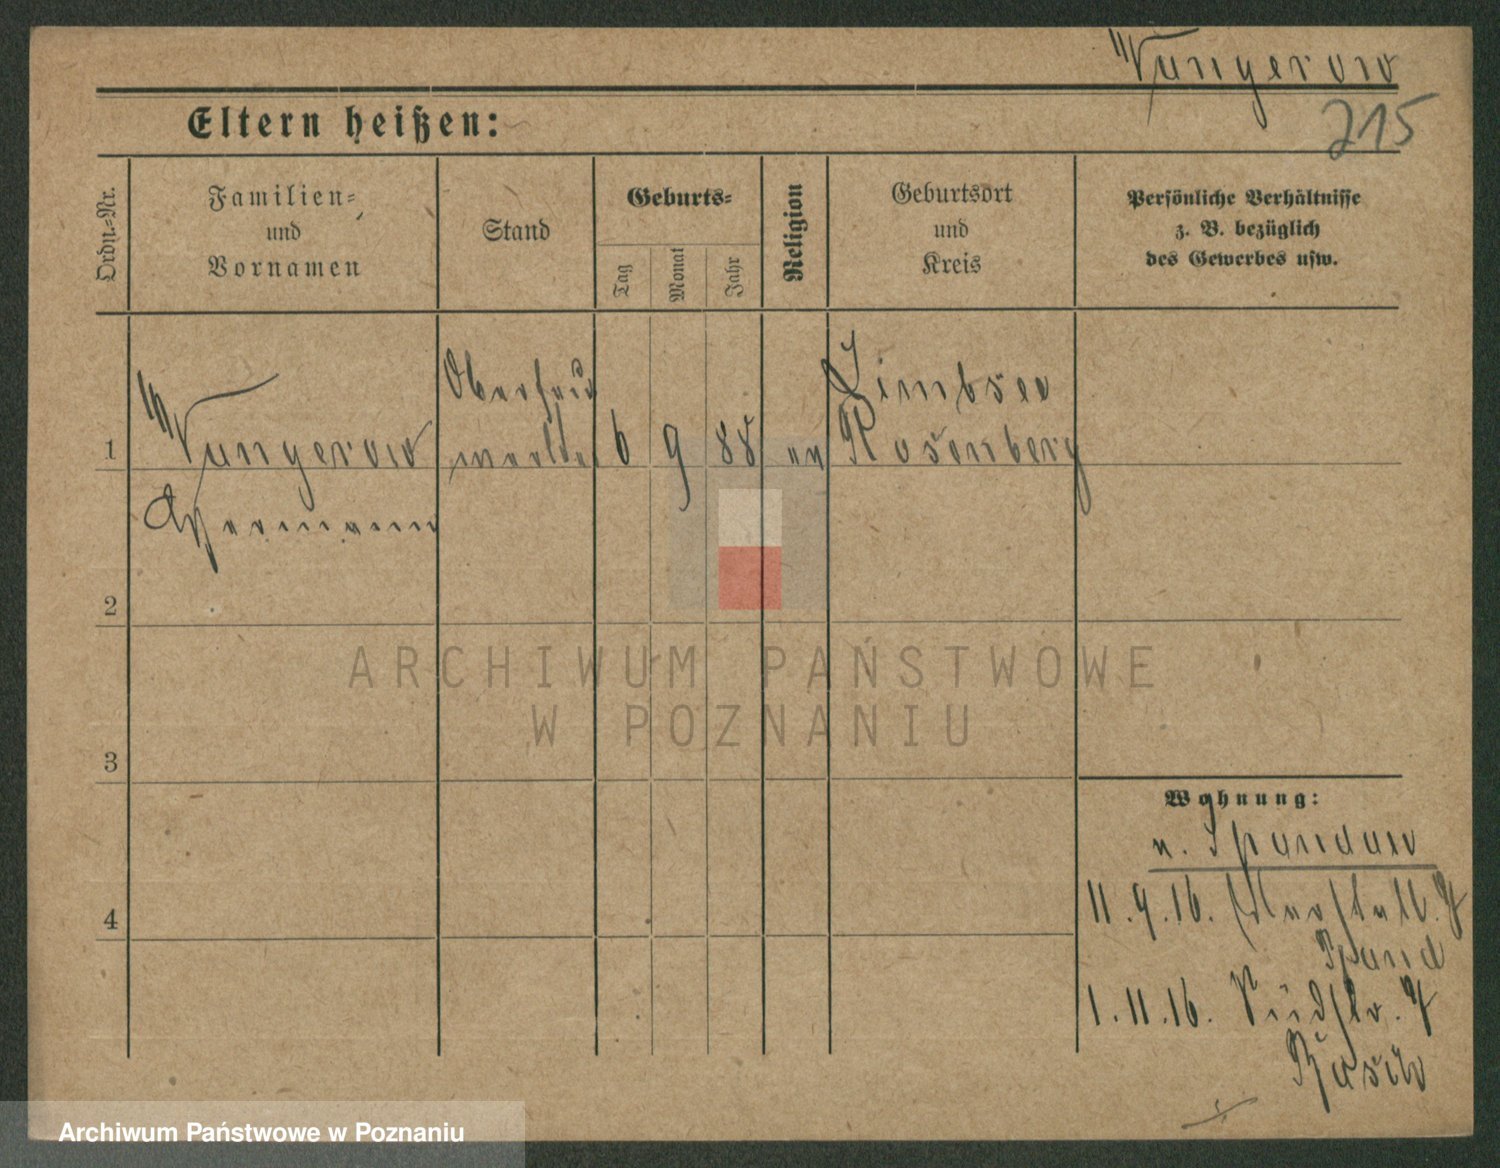 Wungerow
215
Eltern heißen:
Ordn.-Nr.
Familien-
und
Vornamen
Stand
Geburts-
Tag
Monat
Jahr
Religion
Geburtsort
und
Kreis
Persönliche Verhältnisse
z. B. bezüglich
des Gewerbes usw.
1
Wungerow
Hermann
6 9 88 ev
Limbsee
Rosenberg
2
3
4
ARCHIWUM PAŃSTWOWE
W POZNANIU
Wohnung:
n. Spandau
11.9.16.
Spand
1.11.16. Südstr. 7
Archiwum Państwowe w Poznaniu